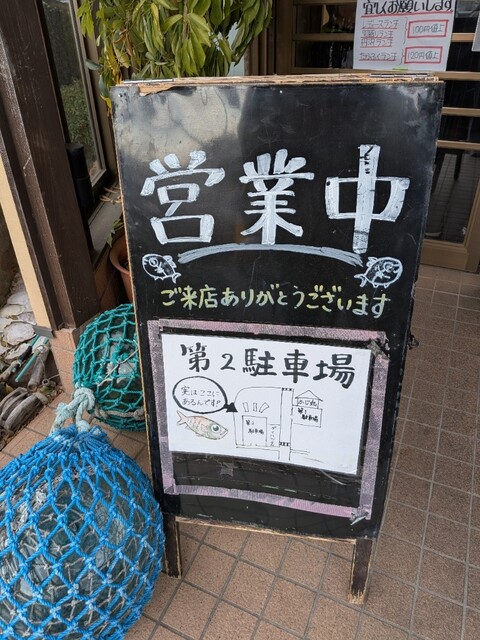 宜しくお願いします
100円値上
120円値上
営業中
ご来店ありがとうございます
第2駐車場
実はここに
あるんです!!
第2
駐車場
第1
駐車場